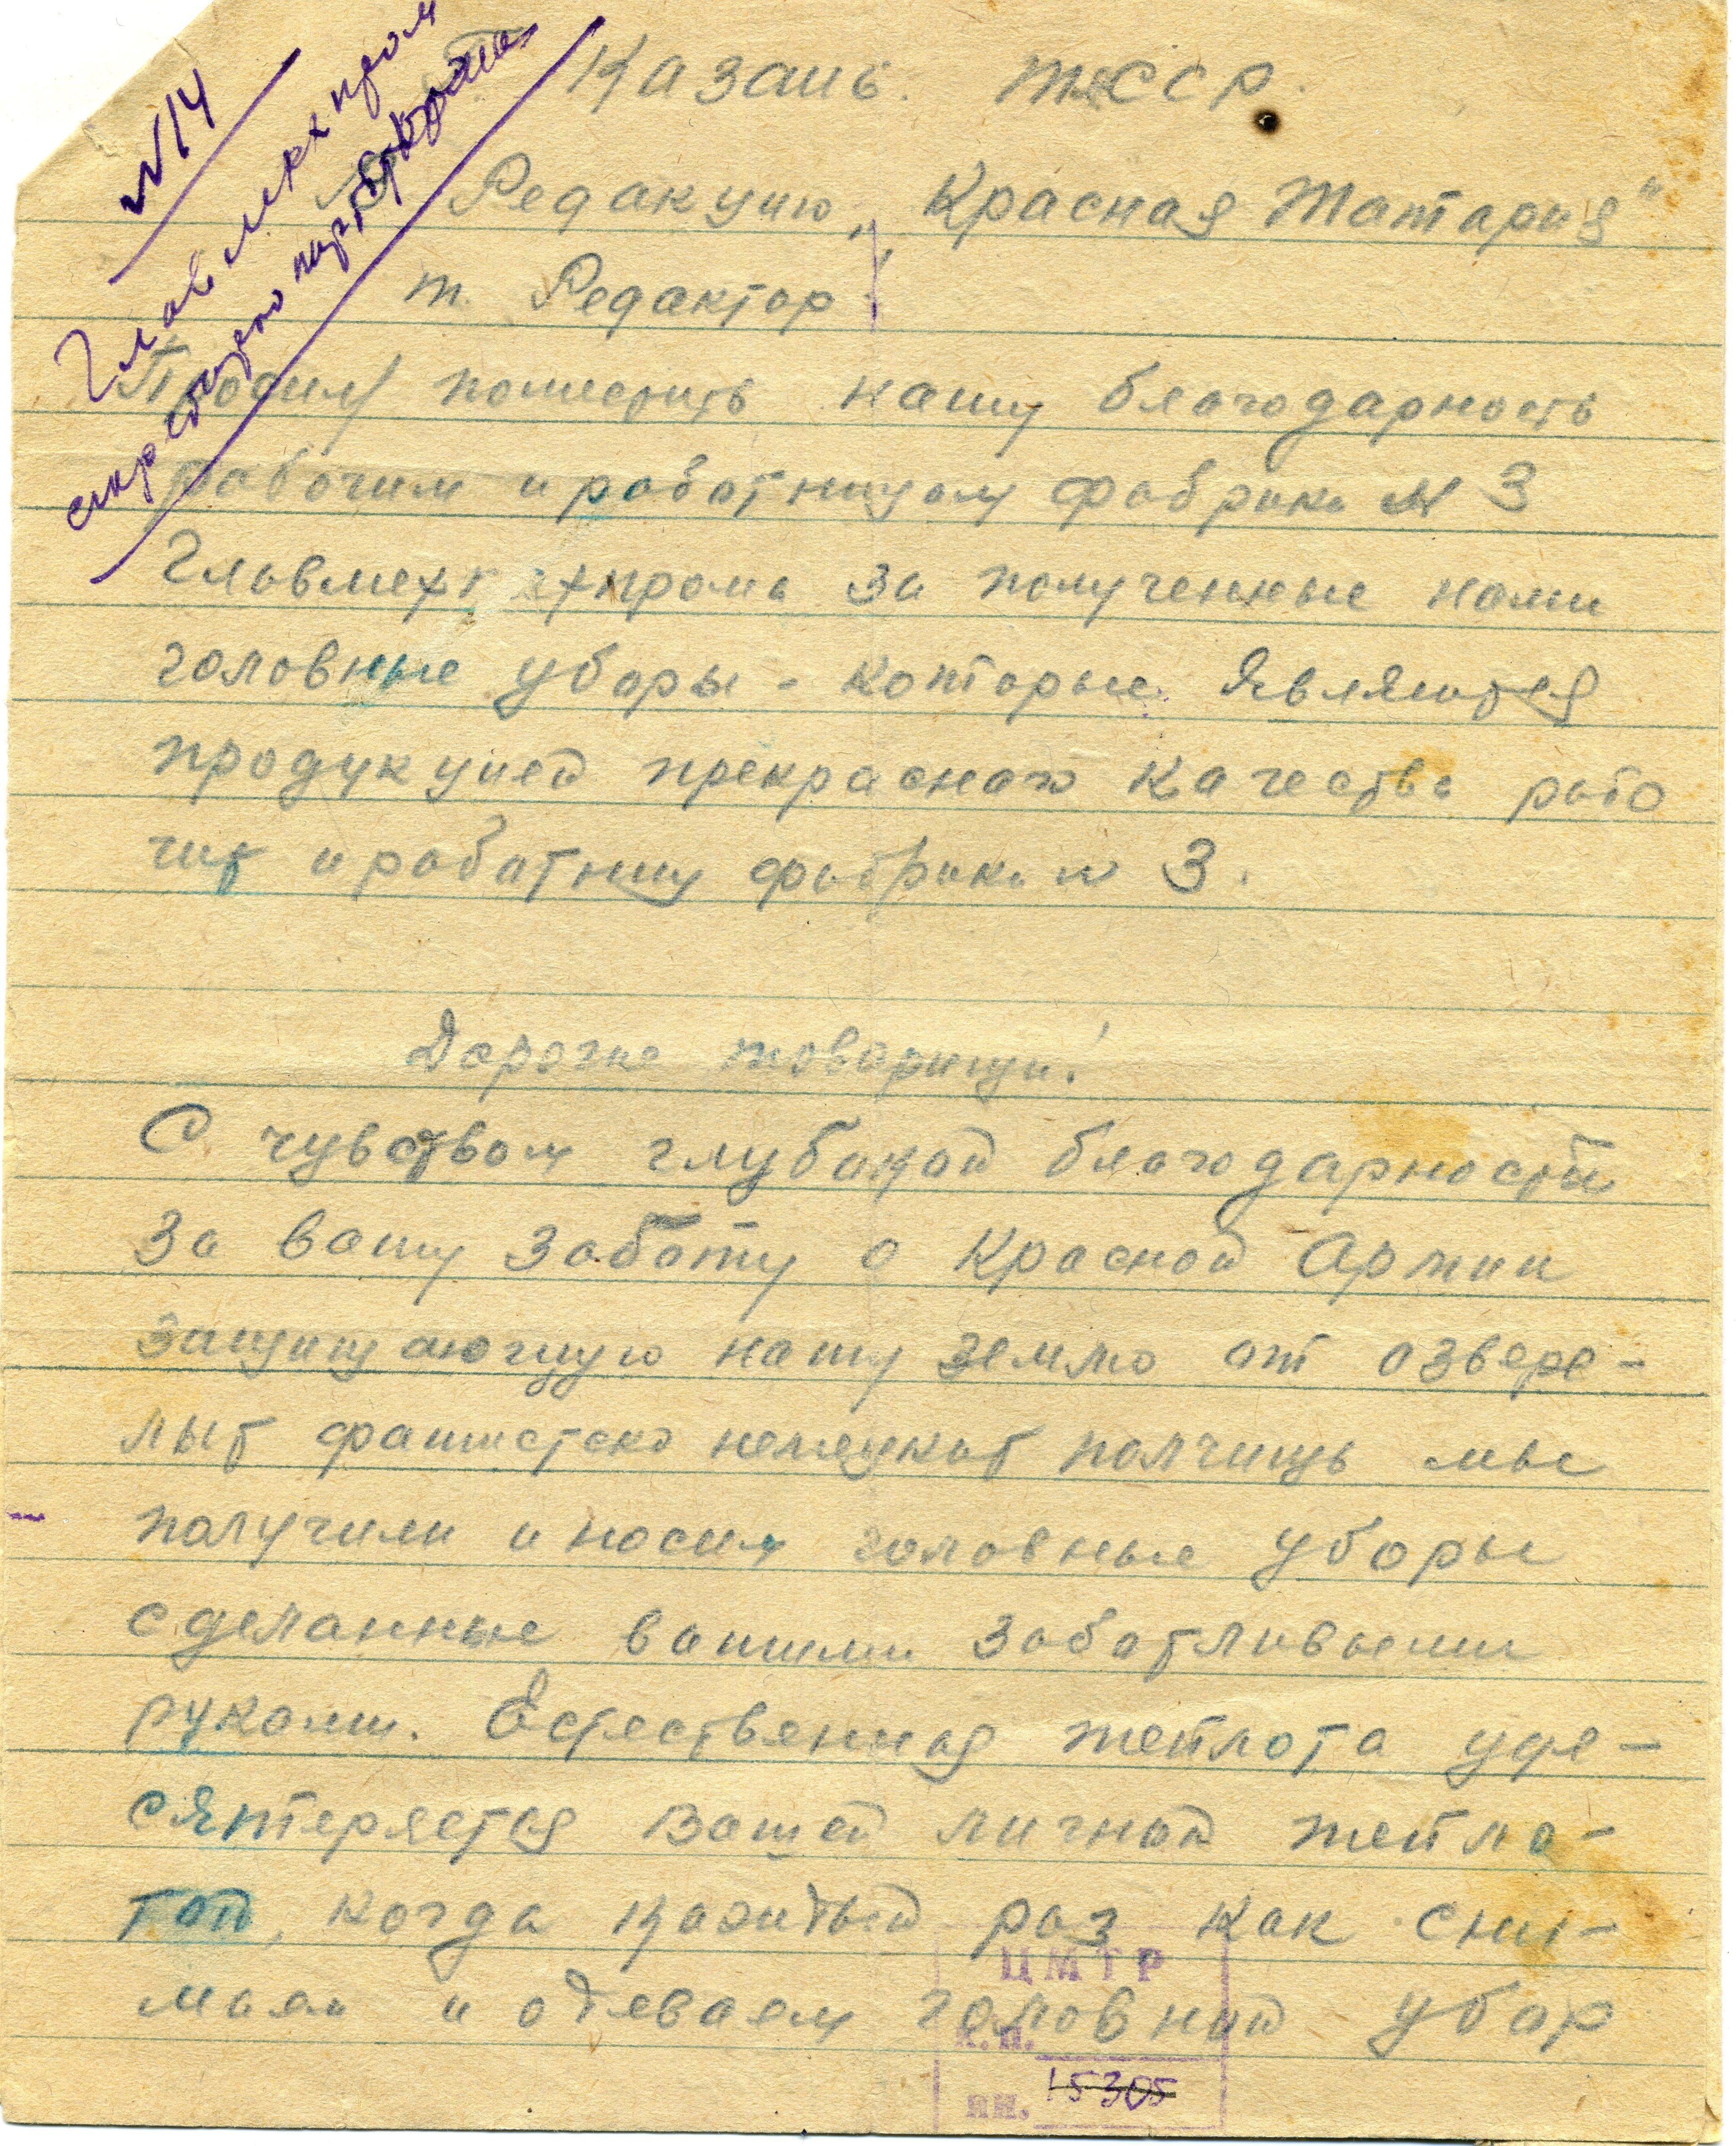 №14
Главмехпром
секретарю парткомитета
Казань. ТССР.
В Редакцию „Красная Татария"
т. Редактор
Просим поместить нашу благодарность
рабочим и работницам фабрики № 3
Главмехпрома за полученные нами
головные уборы - которые являются
продукцией прекрасного качества рабо
чих и работниц фабрики № 3.
Дорогие товарищи!
С чувством глубокой благодарности
за вашу заботу о Красной Армии
защищающую нашу землю от озвере-
лых фашистско немецких полчищь мы
получили и носим головные уборы
сделанные вашими заботливыми
руками. Естественная теплота уде-
сятеряется Вашей личной тепло-
той, когда каждый раз как сни-
маем и одеваем головной убор
ЦМТР
к.п.
ин. 15305